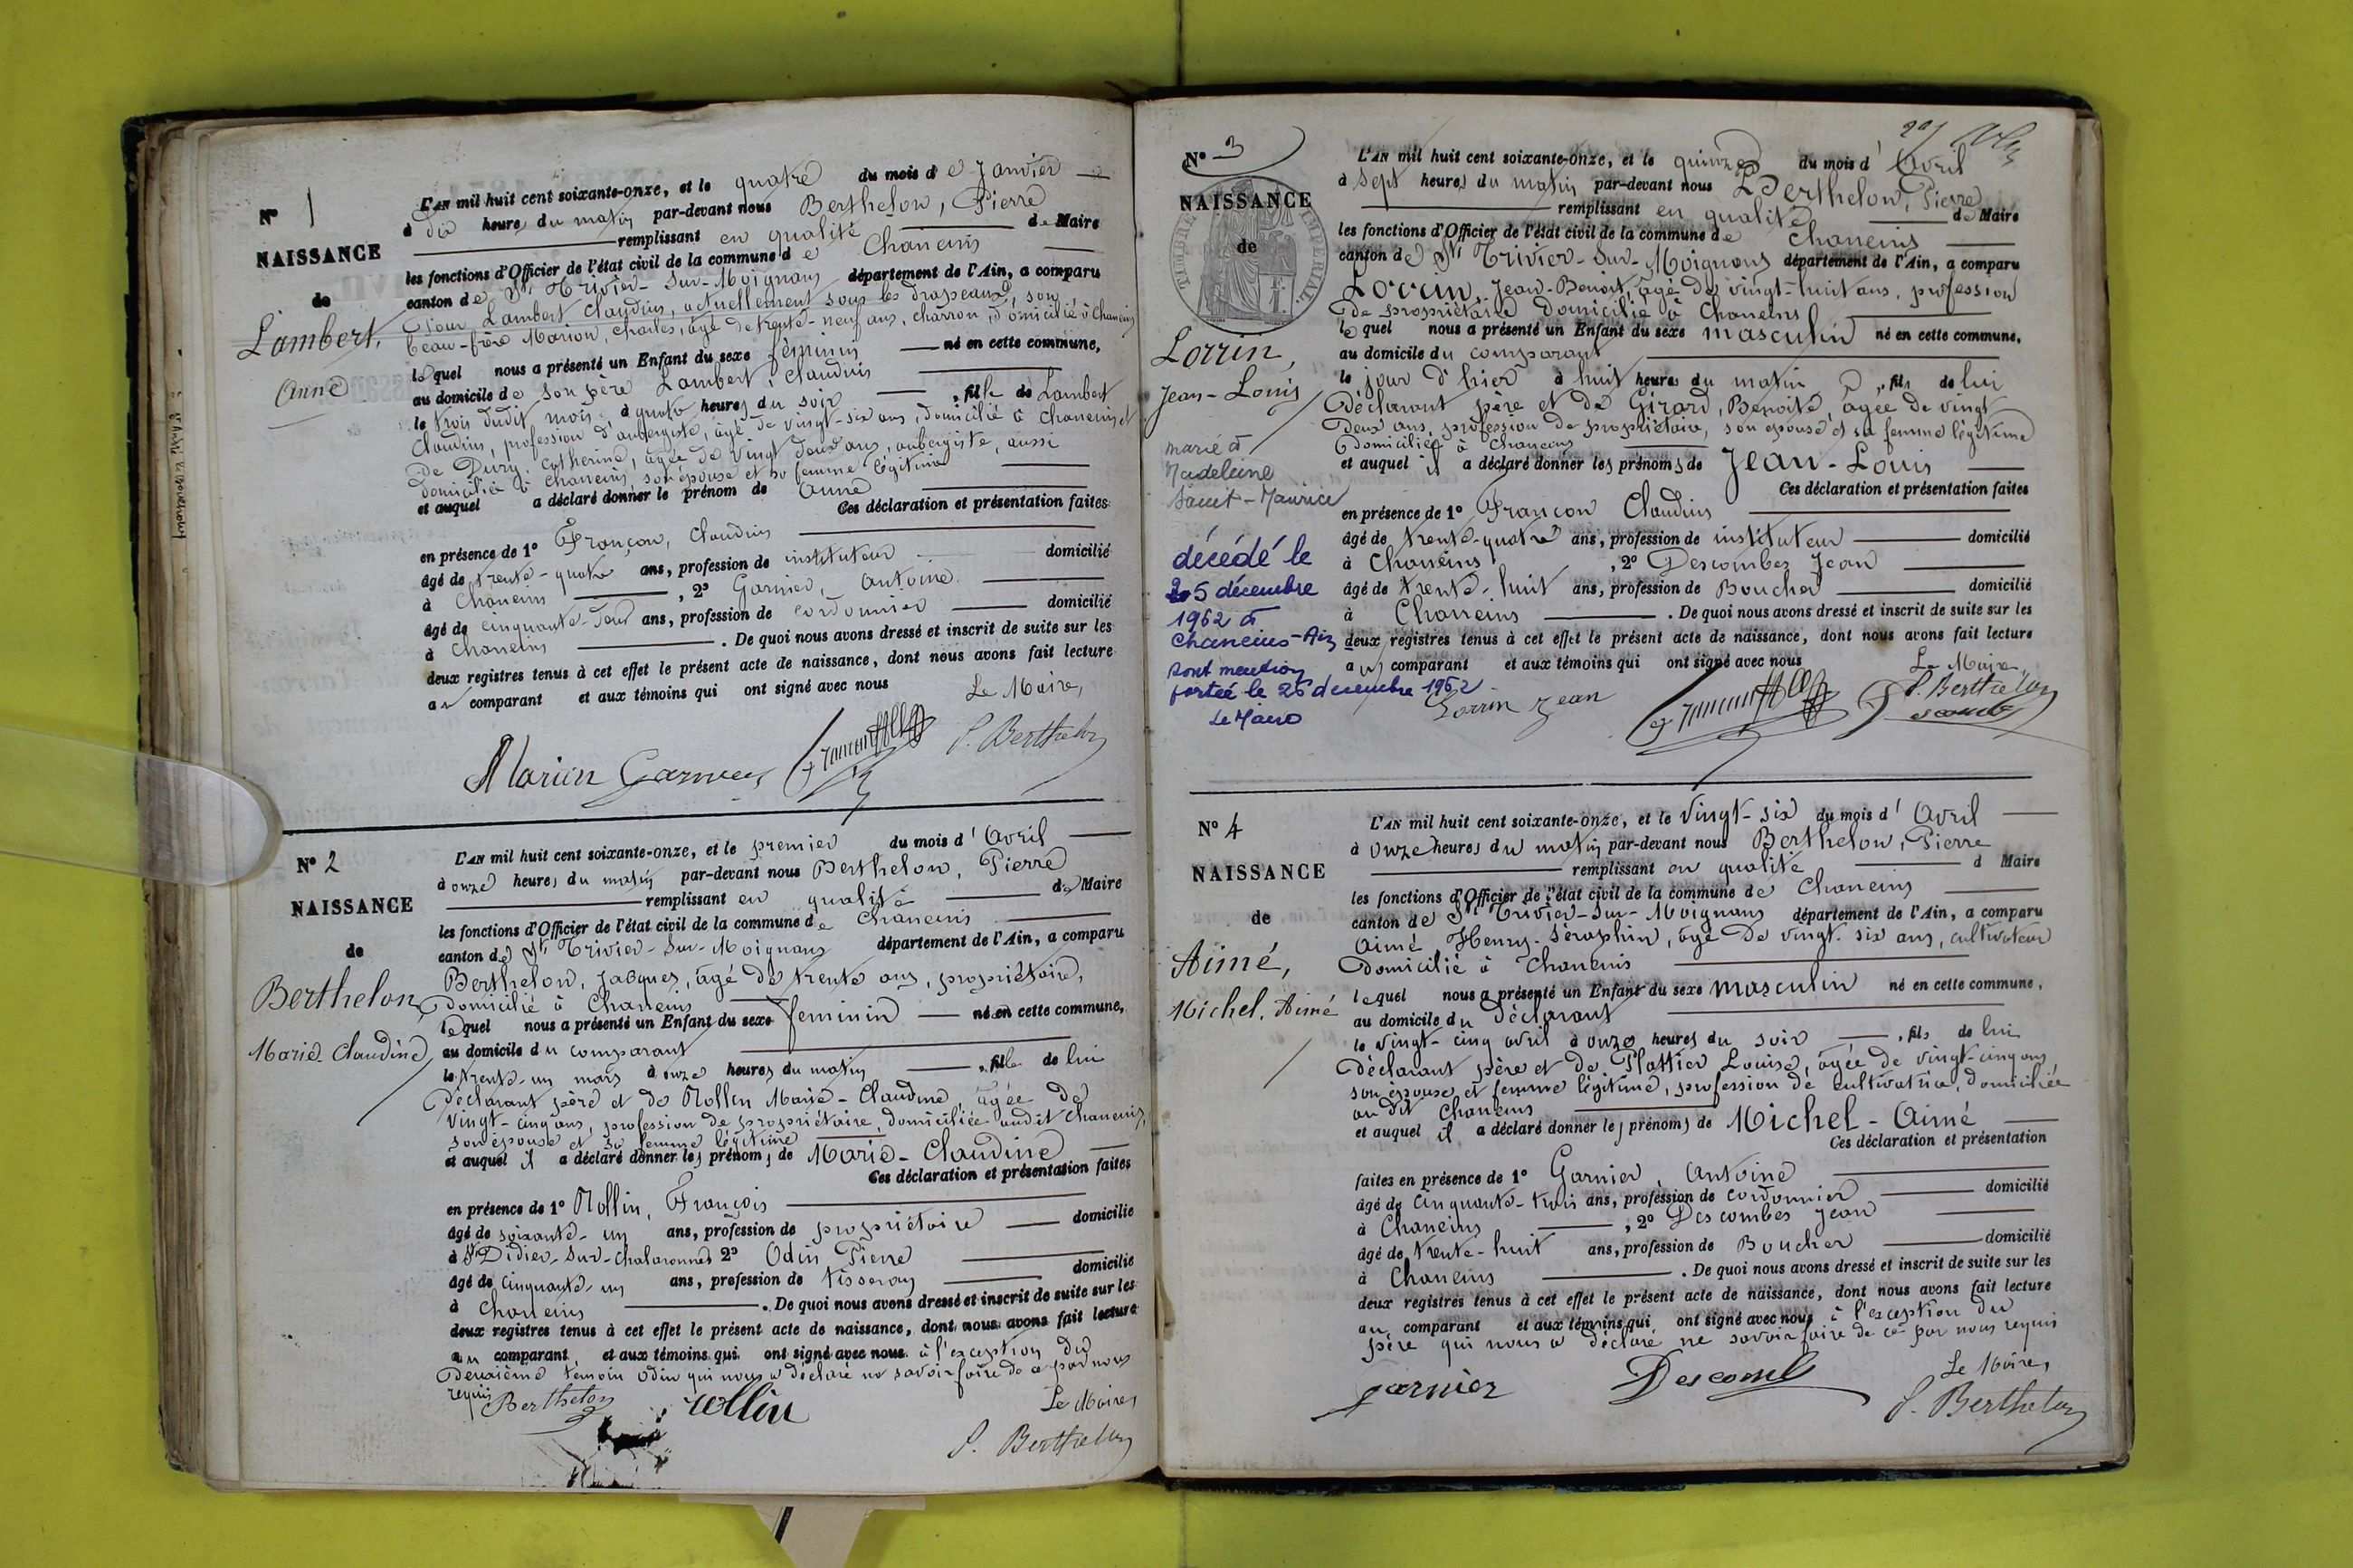 N° 1
NAISSANCE
de
Lambert,
Anne
L'AN mil huit cent soixante-onze, et le quatre du mois de Janvier
à dix heures du matin par-devant nous Berthelon, Pierre
remplissant en qualité de Maire
les fonctions d'Officier de l'état civil de la commune de Chaneins
canton de St Trivier-sur-Moignans département de l'Ain, a comparu
Pour Lambert Claudius, actuellement sous les drapeaux, son
beau-frère Marion, Charles, âgé de trente-neuf ans, charron, domicilié à Chaneins
lequel nous a présenté un Enfant du sexe féminin né en cette commune,
au domicile de son père Lambert, Claudius
le trois dudit mois à quatre heures du soir, fille de Lambert
Claudius, profession d'aubergiste, âgé de vingt-six ans, domicilié à Chaneins et
de Dury, Catherine, âgée de vingt deux ans, aubergiste, aussi
domiciliée à Chaneins, son épouse et sa femme légitime
et auquel a déclaré donner le prénom de Anne
Ces déclaration et présentation faites
en présence de 1° Françon, Claudius
âgé de trente-quatre ans, profession de instituteur domicilié
à Chaneins, 2° Garnier, Antoine
âgé de cinquante-deux ans, profession de cordonnier domicilié
à Chaneins. De quoi nous avons dressé et inscrit de suite sur les
deux registres tenus à cet effet le présent acte de naissance, dont nous avons fait lecture
au comparant et aux témoins qui ont signé avec nous
Le Maire,
Marion Garnier P. Berthelon
N° 2
NAISSANCE
de
Berthelon
Marie Claudine
L'AN mil huit cent soixante-onze, et le premier du mois d'Avril
à onze heures du matin par-devant nous Berthelon, Pierre
remplissant en qualité de Maire
les fonctions d'Officier de l'état civil de la commune de Chaneins
canton de St Trivier-sur-Moignans département de l'Ain, a comparu
Berthelon, Jacques, âgé de trente ans, propriétaire,
domicilié à Chaneins
lequel nous a présenté un Enfant du sexe féminin né en cette commune,
au domicile du comparant
le trente-un mars à onze heures du matin, fille de lui
déclarant père et de Rollin Marie-Claudine, âgée de
vingt-cinq ans, profession de propriétaire, domiciliée audit Chaneins,
son épouse et sa femme légitime
et auquel il a déclaré donner les prénoms de Marie-Claudine
Ces déclaration et présentation faites
en présence de 1° Rollin, François
âgé de soixante-un ans, profession de propriétaire domicilié
à St Didier-sur-Chalaronne 2° Odin Pierre
âgé de cinquante-un ans, profession de tisserand domicilié
à Chaneins. De quoi nous avons dressé et inscrit de suite sur les
deux registres tenus à cet effet le présent acte de naissance, dont nous avons fait lecture
au comparant, et aux témoins qui ont signé avec nous à l'exception du
deuxième témoin Odin qui nous a déclaré ne savoir faire de ce par nous
requis
Berthelon rollin Le Maire,
P. Berthelon
N° 3
NAISSANCE
de
TIMBRE IMPERIAL.
Lorrin,
Jean-Louis
marié à
Madeleine
Saint-Maurice
décédé le
25 décembre
1962 à
Chaneins-Ain
dont mention
portée le 26 décembre 1962
Le Maire
L'AN mil huit cent soixante-onze, et le quinze du mois d'Avril
à sept heures du matin par-devant nous Berthelon, Pierre
remplissant en qualité de Maire
les fonctions d'Officier de l'état civil de la commune de Chaneins
canton de St Trivier-sur-Moignans département de l'Ain, a comparu
Lorrin, Jean-Benoit, âgé de vingt-huit ans, profession
de propriétaire domicilié à Chaneins
lequel nous a présenté un Enfant du sexe masculin né en cette commune,
au domicile du comparant
le jour d'hier à huit heures du matin, fils de lui
déclarant père et de Girard, Benoite, âgée de vingt
deux ans, profession de propriétaire, son épouse et sa femme légitime
domiciliée à Chaneins
et auquel il a déclaré donner les prénoms de Jean-Louis
Ces déclaration et présentation faites
en présence de 1° Françon Claudius
âgé de trente-quatre ans, profession de instituteur domicilié
à Chaneins, 2° Descombes Jean
âgé de trente-huit ans, profession de Boucher domicilié
à Chaneins. De quoi nous avons dressé et inscrit de suite sur les
deux registres tenus à cet effet le présent acte de naissance, dont nous avons fait lecture
au comparant et aux témoins qui ont signé avec nous
Le Maire,
Lorrin Jean P. Berthelon
N° 4
NAISSANCE
de
Aimé,
Michel, Aimé
L'AN mil huit cent soixante-onze, et le vingt-six du mois d'Avril
à onze heures du matin par-devant nous Berthelon, Pierre
remplissant en qualité d Maire
les fonctions d'Officier de l'état civil de la commune de Chaneins
canton de St Trivier-sur-Moignans département de l'Ain, a comparu
Aimé, Henry-Séraphin, âgé de vingt-six ans, cultivateur
domicilié à Chaneins
lequel nous a présenté un Enfant du sexe masculin né en cette commune,
au domicile du déclarant
le vingt-cinq avril à onze heures du soir, fils de lui
déclarant père et de Plattier Louise, âgée de vingt-cinq ans
son épouse et femme légitime, profession de cultivatrice, domiciliée
au dit Chaneins
et auquel il a déclaré donner les prénoms de Michel-Aimé
Ces déclaration et présentation
faites en présence de 1° Garnier, Antoine
âgé de cinquante-trois ans, profession de cordonnier domicilié
à Chaneins, 2° Descombes Jean
âgé de trente-huit ans, profession de Boucher domicilié
à Chaneins. De quoi nous avons dressé et inscrit de suite sur les
deux registres tenus à cet effet le présent acte de naissance, dont nous avons fait lecture
au comparant et aux témoins qui ont signé avec nous à l'exception du
père qui nous a déclaré ne savoir faire de ce par nous requis
Le Maire,
garnier Descombe P. Berthelon